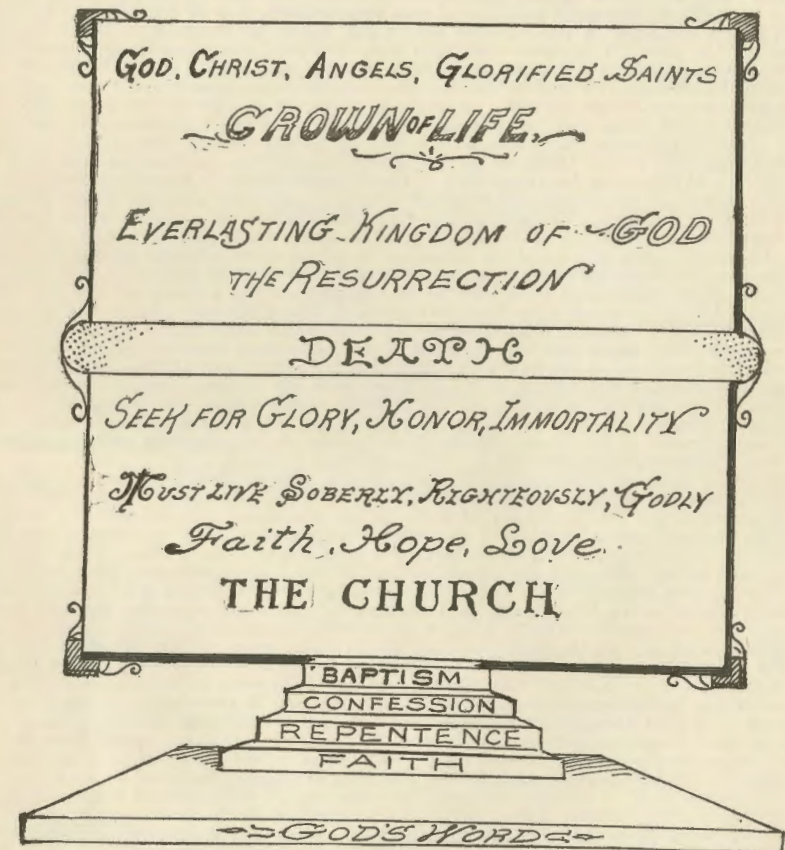 GOD, CHRIST, ANGELS, GLORIFIED SAINTS
CROWN OF LIFE,
EVERLASTING KINGDOM OF GOD
THE RESURRECTION
DEATH
SEEK FOR GLORY, HONOR, IMMORTALITY
MUST LIVE SOBERLY, RIGHTEOUSLY, GODLY
Faith, Hope, Love.
THE CHURCH
BAPTISM
CONFESSION
REPENTENCE
FAITH
GOD'S WORD